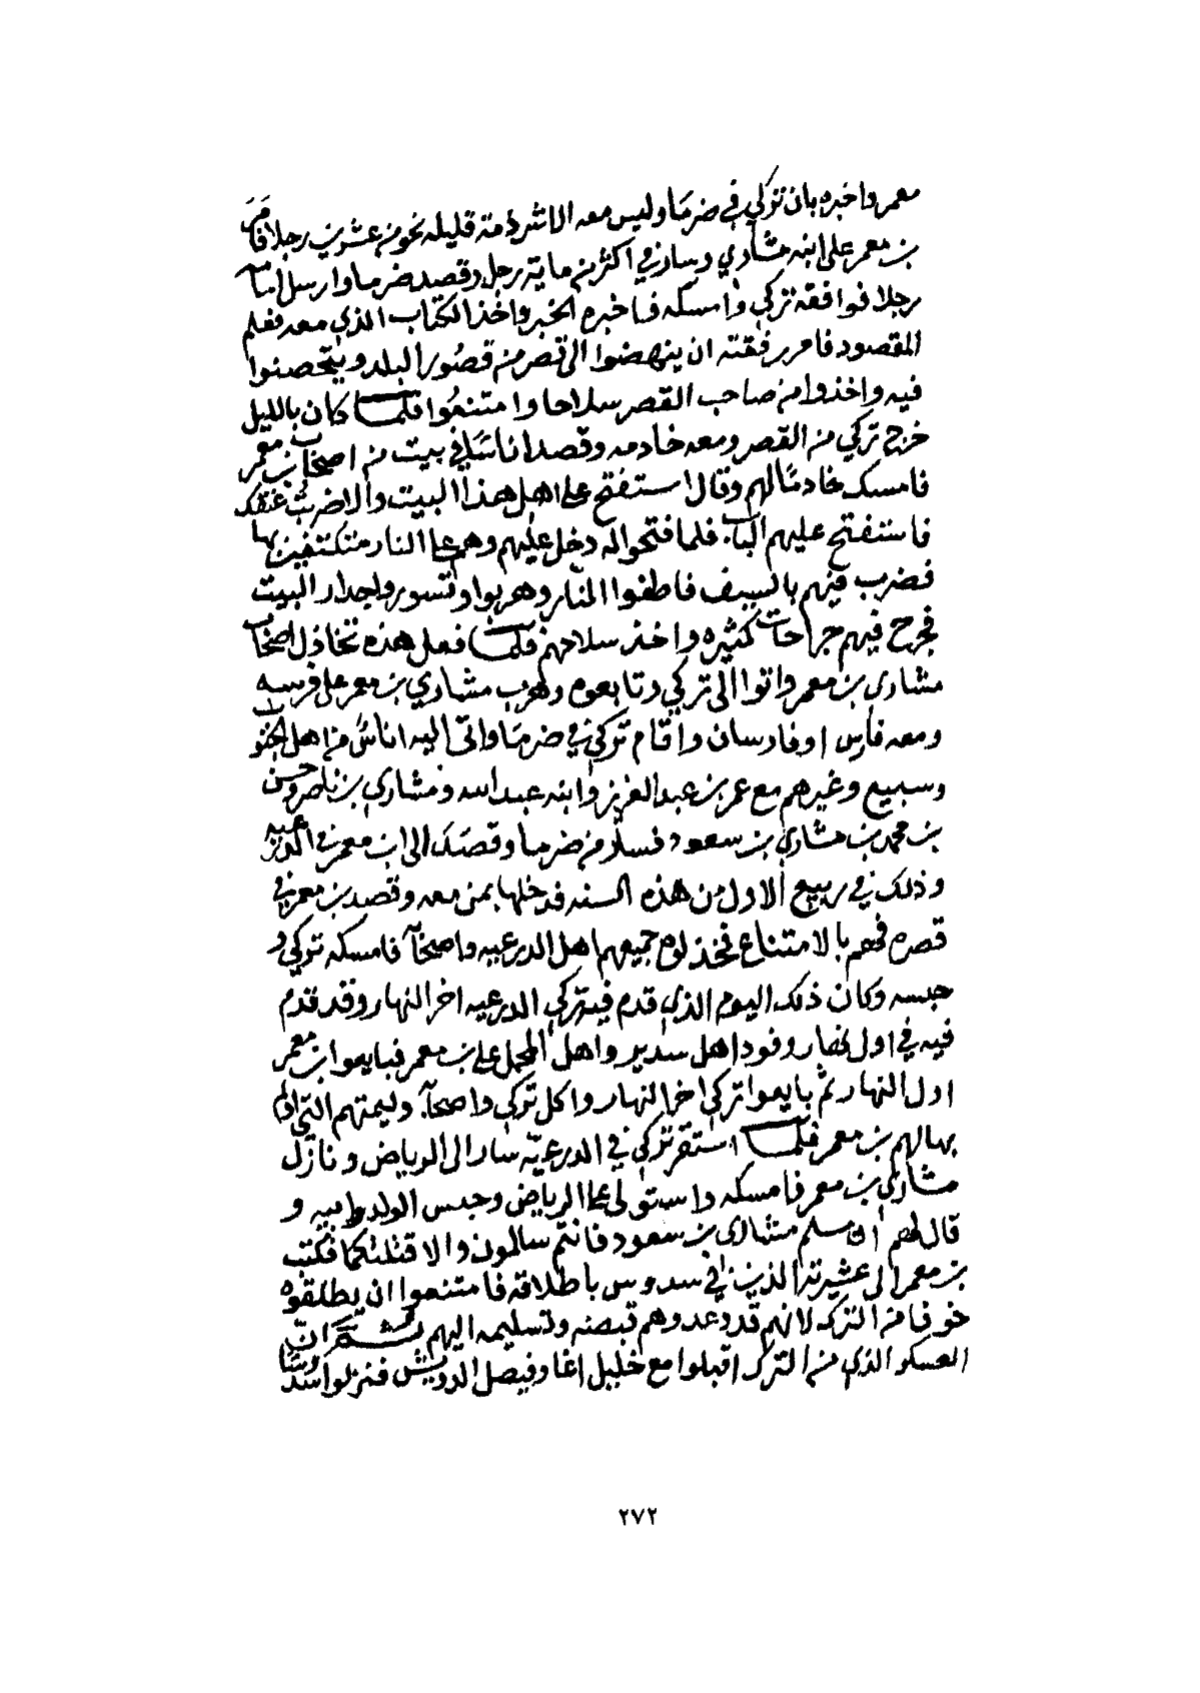 معمر واخبره بان تركي في ضرما وليس معه الا شرذمة قليله نحو من عشرين رجلا فامر
بن معمر على ابنه مشاري وسار في اكثر من ماية رجل وقصد ضرما وارسل امامه
رجلا فوافقه تركي وامسكه فاخبره الخبر واخذ الكتاب الذي معه فعلم
المقصود فامر رفقته ان ينهضوا الى قصر من قصور البلد ويتحصنوا
فيه واخذوا من صاحب القصر سلاحا وامتنعوا فلما كان بالليل
خرج تركي من القصر ومعه خادمه وقصد اناسا في بيت من اصحاب بن معمر
فامسك خادما لهم وقال استفتح على اهل هذا البيت والا ضربت عنقك
فاستفتح عليهم الباب فلما فتحوا له دخل عليهم وهم على النار متكنفين بها
فضرب فيهم بالسيف فاطفوا النار وهربوا وتسوروا جدار البيت
فجرح فيهم جراحات كثيره واخذ سلاحهم فلما فعل هذه تخاذل اصحاب
مشاري بن معمر واتوا الى تركي وتابعوه وهرب مشاري بن معمر على فرسه
ومعه فارس او فارسان واقام تركي في ضرما واتى اليه اناس من اهل الجنوب
وسبيع وغيرهم مع عمر بن عبدالعزيز وابنه عبدالله ومشاري بن ناصر وحسن
بن محمد بن مشاري بن سعود فسار من ضرما وقصد الى ابن معمر في الدرعيه
وذلك في ربيع الاول من هذه السنه فدخلها بمن معه وقصد بن معمر في
قصره فهم بالامتناع فخذلوه جميعهم اهل الدرعيه واصحابه فامسكه تركي و
حبسه وكان ذلك اليوم الذي قدم فيه تركي الدرعيه اخر النهار وقد قدم
فيه في اول نهار وفود اهل سدير واهل المحمل على بن معمر فبايعوا بن معمر
اول النهار ثم بايعوا تركي اخر النهار واكل تركي واصحابه وليمتهم التي اولم
بها لهم بن معمر فلما استقر تركي في الدرعيه سار الى الرياض ونازل
مشاري بن معمر فامسكه واستولى على الرياض وحبس الولد وابيه و
قال لهم ان سلم مشاري بن سعود فانتم سالمون والا قتلتكما فكتب
بن معمر الى عشيرته الذين في سدوس باطلاقه فامتنعوا ان يطلقوه
خوفا من الترك لانهم قد وعدوهم قبضه وتسليمه اليهم ثم ان
العسكر الذي من الترك اقبلوا مع خليل اغا وفيصل الدويش فنزلوا سدوس
٢٧٢